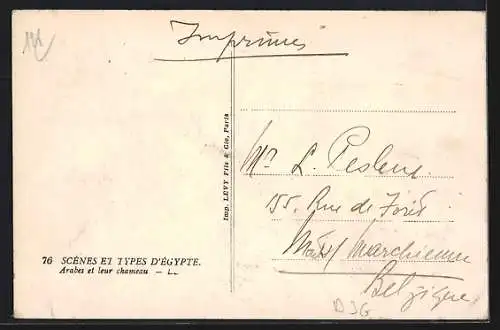 Imprimés
Imp. LÉVY Fils & Cie, Paris
Mr L. 
155, Rue de
Marchienne
Belgique
76 SCÈNES ET TYPES D'ÉGYPTE.
Arabes et leur chameau — LL.
DJG